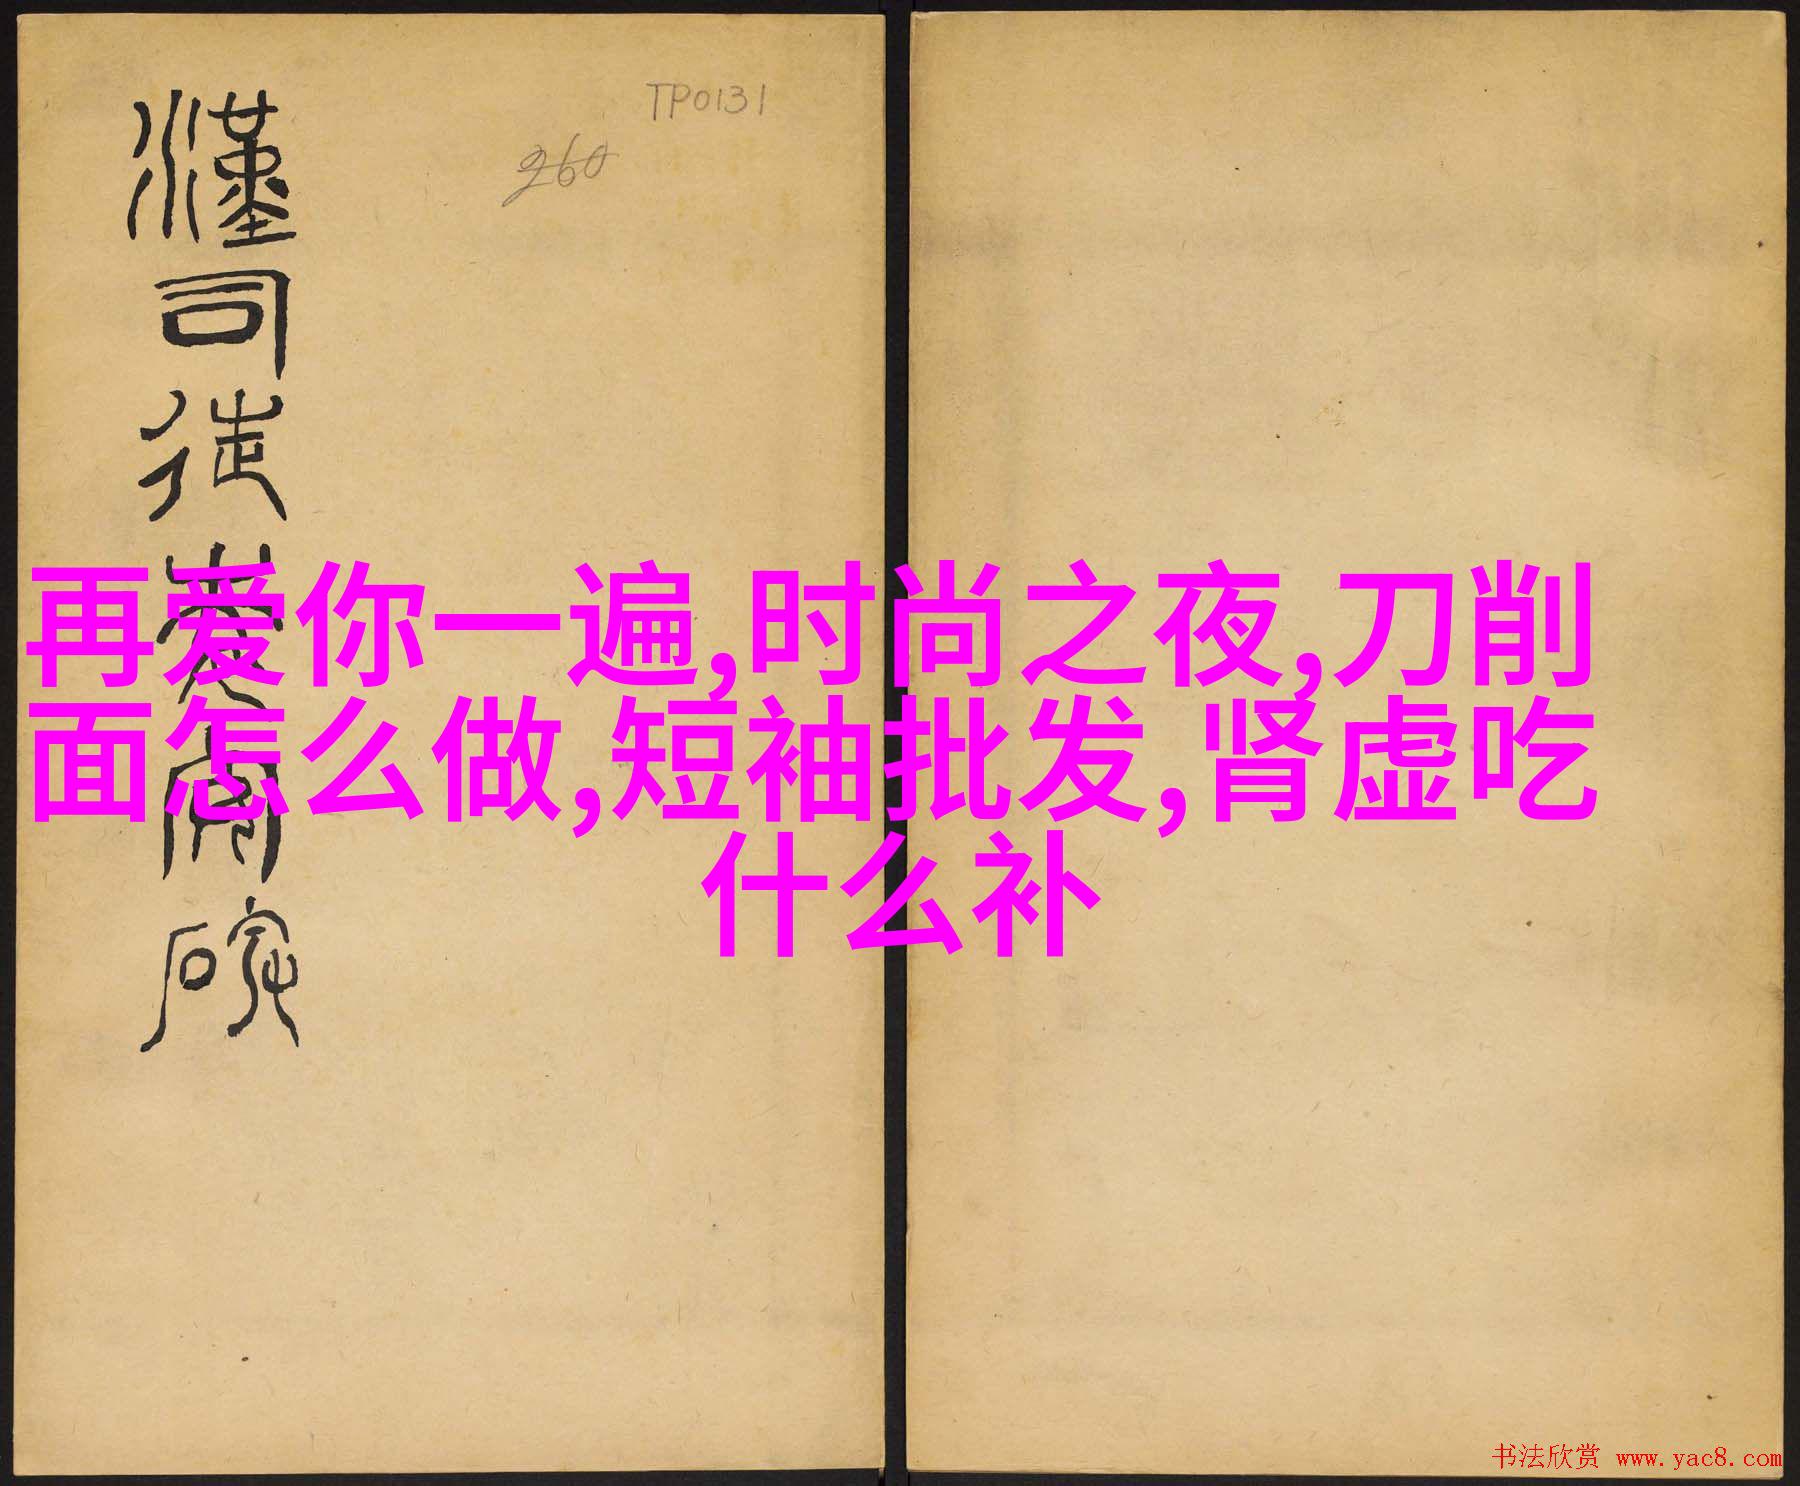 TP0131
260
漢司徒袁安碑
再爱你一遍,时尚之夜,刀削
面怎么做,短袖批发,肾虚吃
什么补
书法欣赏 www.yac8.com